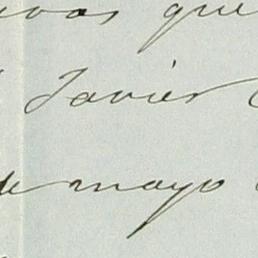 que
Javier
de mayo